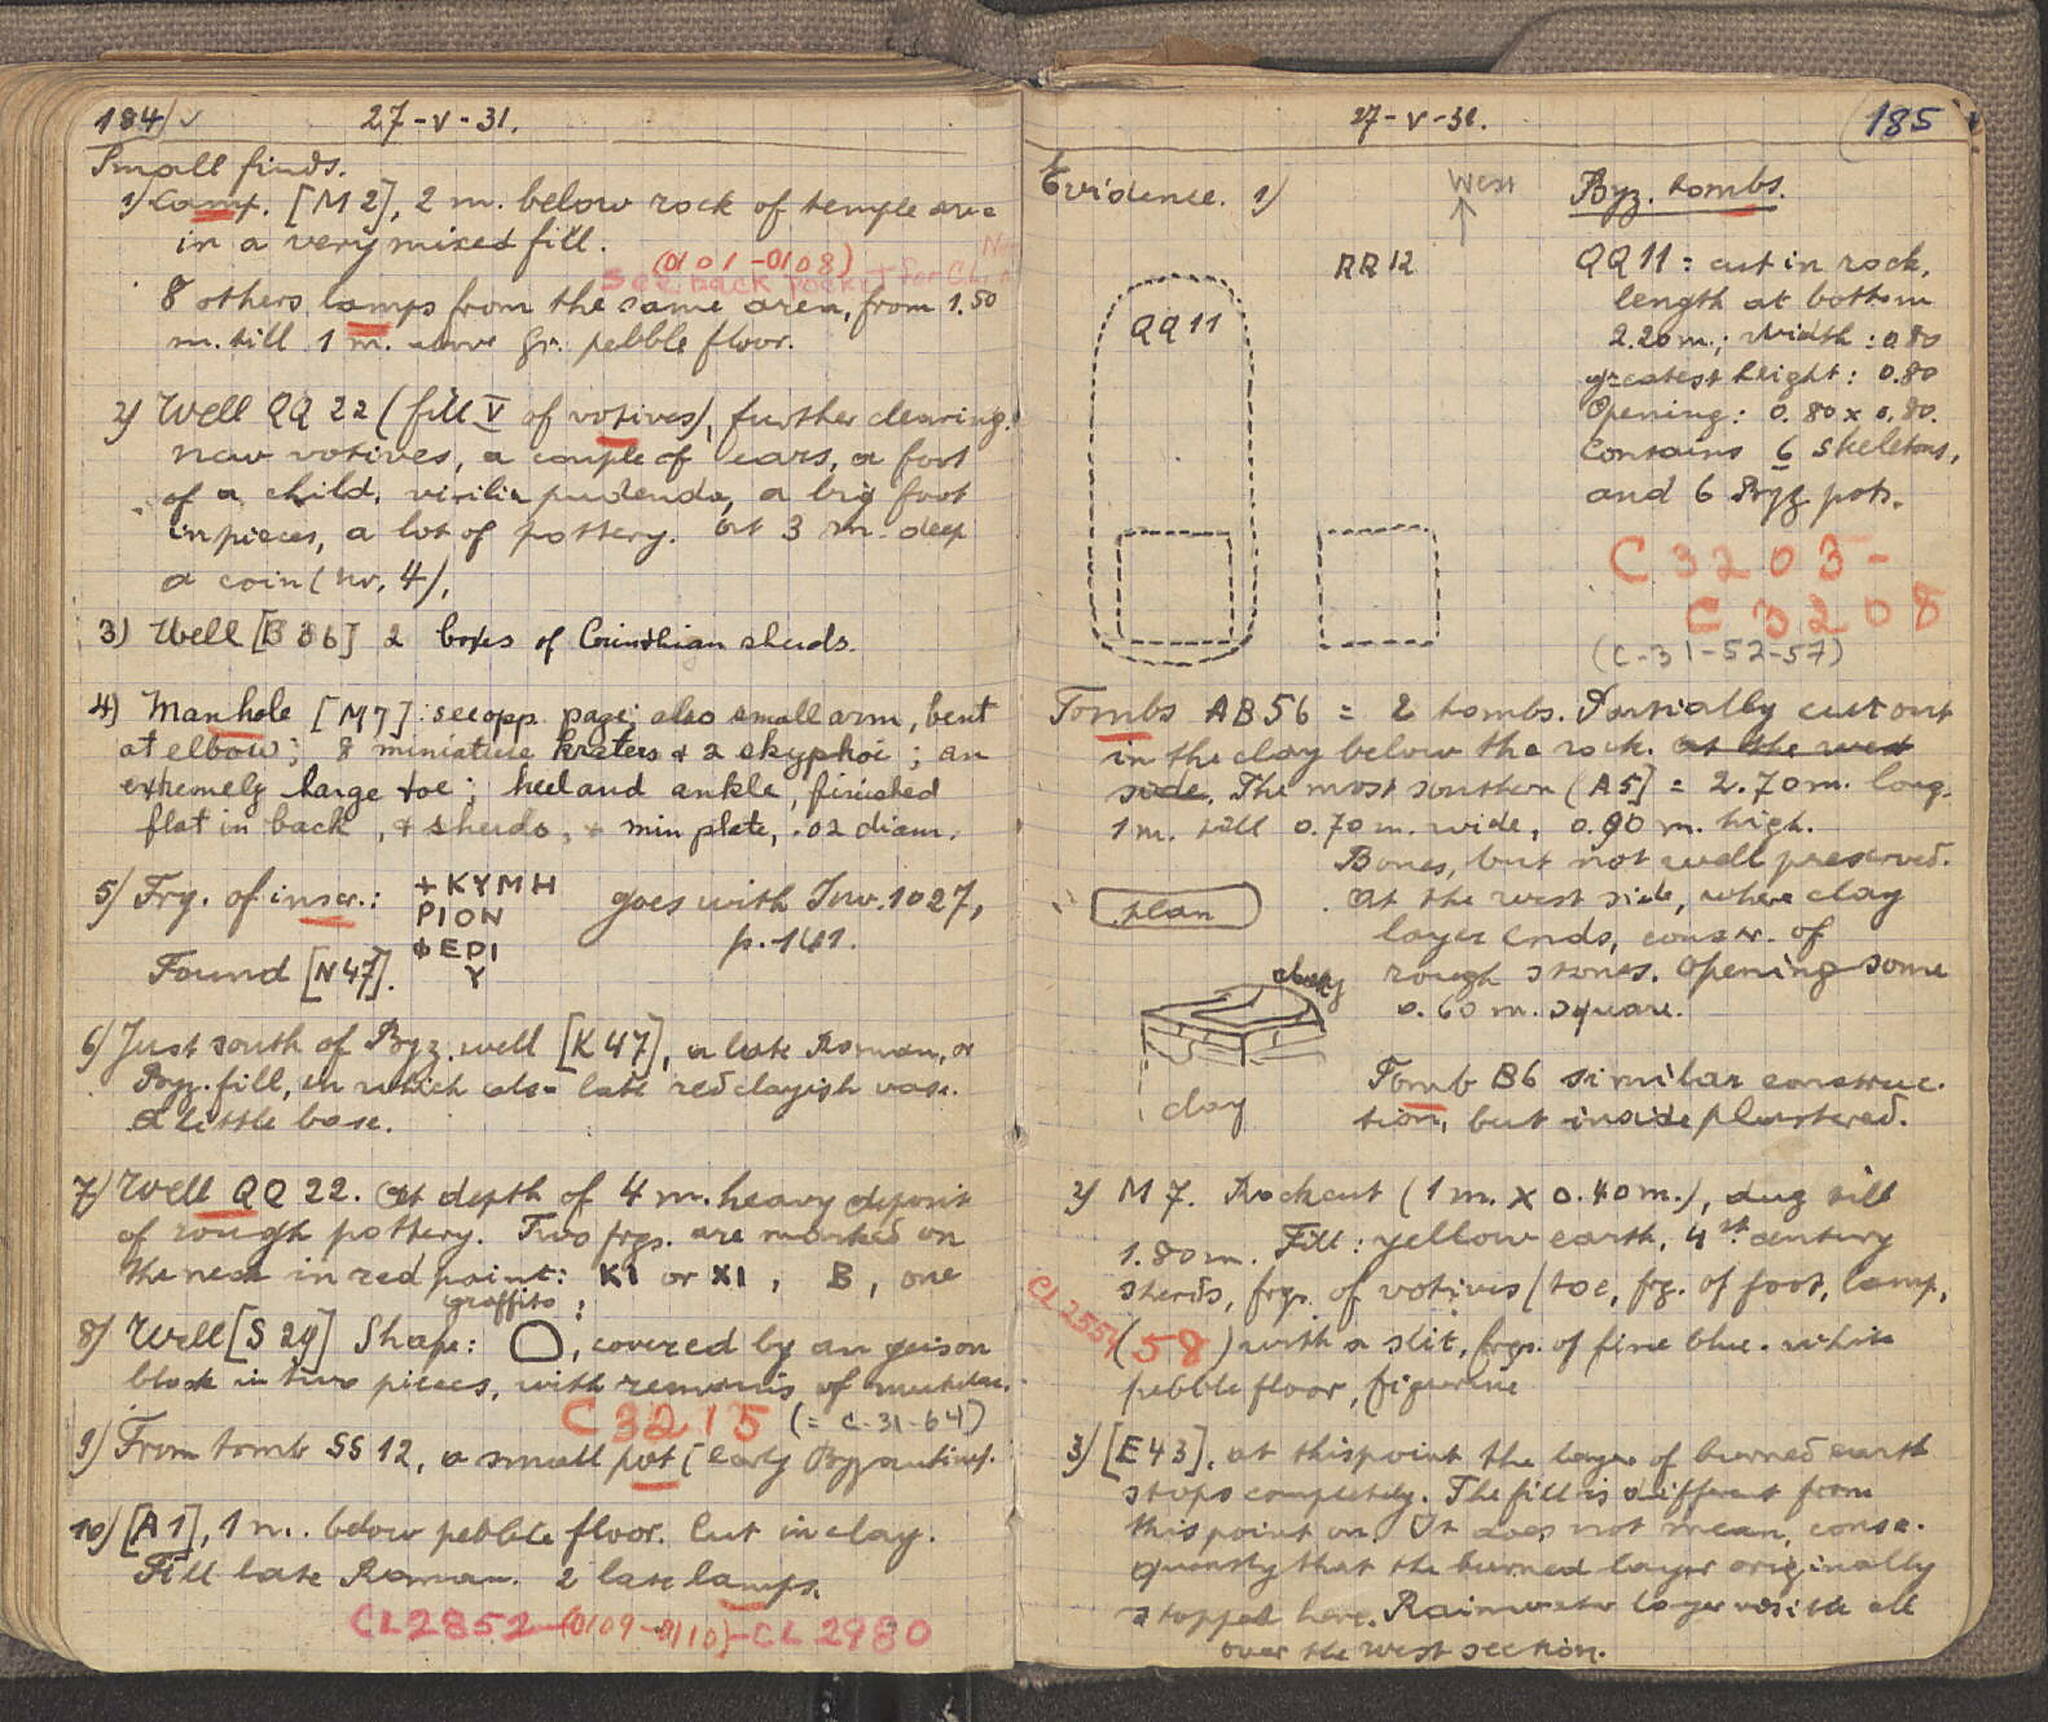 184 ✓ 27-V-31.
Small finds.
1) Lamp. [M2], 2 m. below rock of temple area
in a very mixed fill.
(0101-0108)
See back pocket for CL
8 others lamps from the same area, from 1.50
m. till 1 m. above Gr. pebble floor.
2) Well QQ 22 (fill V of votives), further clearing:
new votives, a couple of ears, a foot
of a child, virilia pudenda, a big foot
in pieces, a lot of pottery. At 3 m. deep
a coin (nr. 4),
3) Well [B 36] 2 boxes of Corinthian sherds.
4) Manhole [M7]: see opp. page; also small arm, bent
at elbow; 8 miniature kraters & 2 skyphoi; an
extremely large toe; heel and ankle, finished
flat in back, & sherds, + min plate, .02 diam.
5) Frg. of inscr.: +ΚΥΜΗ goes with Inv. 1027,
ΡΙΟΝ p. 141.
ΦΕΡΙ
Found [N47]. Υ
6) Just south of Byz. well [K47], a late Roman, or
Byz. fill, in which also late red clayish vase.
A little base.
7) Well QQ 22. At depth of 4 m. heavy deposit
of rough pottery. Two frgs. are marked on
the neck in red paint: KI or XI, B, one
graffito:
8) Well [S 29] Shape: , covered by an geison
block in two pieces, with remains of mutulae.
C 3215 (= C-31-64)
9) From tomb SS 12, a small pot (early Byzantine).
10) [A1], 1 m. below pebble floor. Cut in clay.
Fill late Roman. 2 late lamps.
CL2852-(0109-0110)-CL 2980
27-V-31. 185
Evidence. 1) West Byz. tombs.
RR12
QQ11
QQ11 = cut in rock,
length at bottom
2.20 m.; Width: 0.80
greatest height: 0.80
Opening: 0.80 x 0.80.
Contains 6 skeletons,
and 6 Byz pots.
C 3203-
C 3208
(C-31-52-57)
Tombs AB56 = 2 tombs. Partially cut out
in the clay below the rock. At the west
side. The most southern (A5] = 2.70 m. long.
1 m. till 0.70 m. wide, 0.90 m. high.
Bones, but not well preserved.
plan
At the west side, where clay
layer ends, constr. of
rough stones. Opening some
0.60 m. square.
clay
Tomb B6 similar construc-
tion, but inside plastered.
2) M7. Rockcut (1 m. x 0.40 m.), dug till
1.80 m. Fill: yellow earth, 4th century
sherds, frgs. of votives (toe, frg. of foot, lamp,
CL2554
(58) with a slit, frgs. of fine blue-white
pebble floor, figurine
3) [E43], at this point the layer of burned earth
stops completely. The fill is different from
this point on. It does not mean, conse-
quently that the burned layer originally
stopped here. Rainwater layer visible all
over the west section.